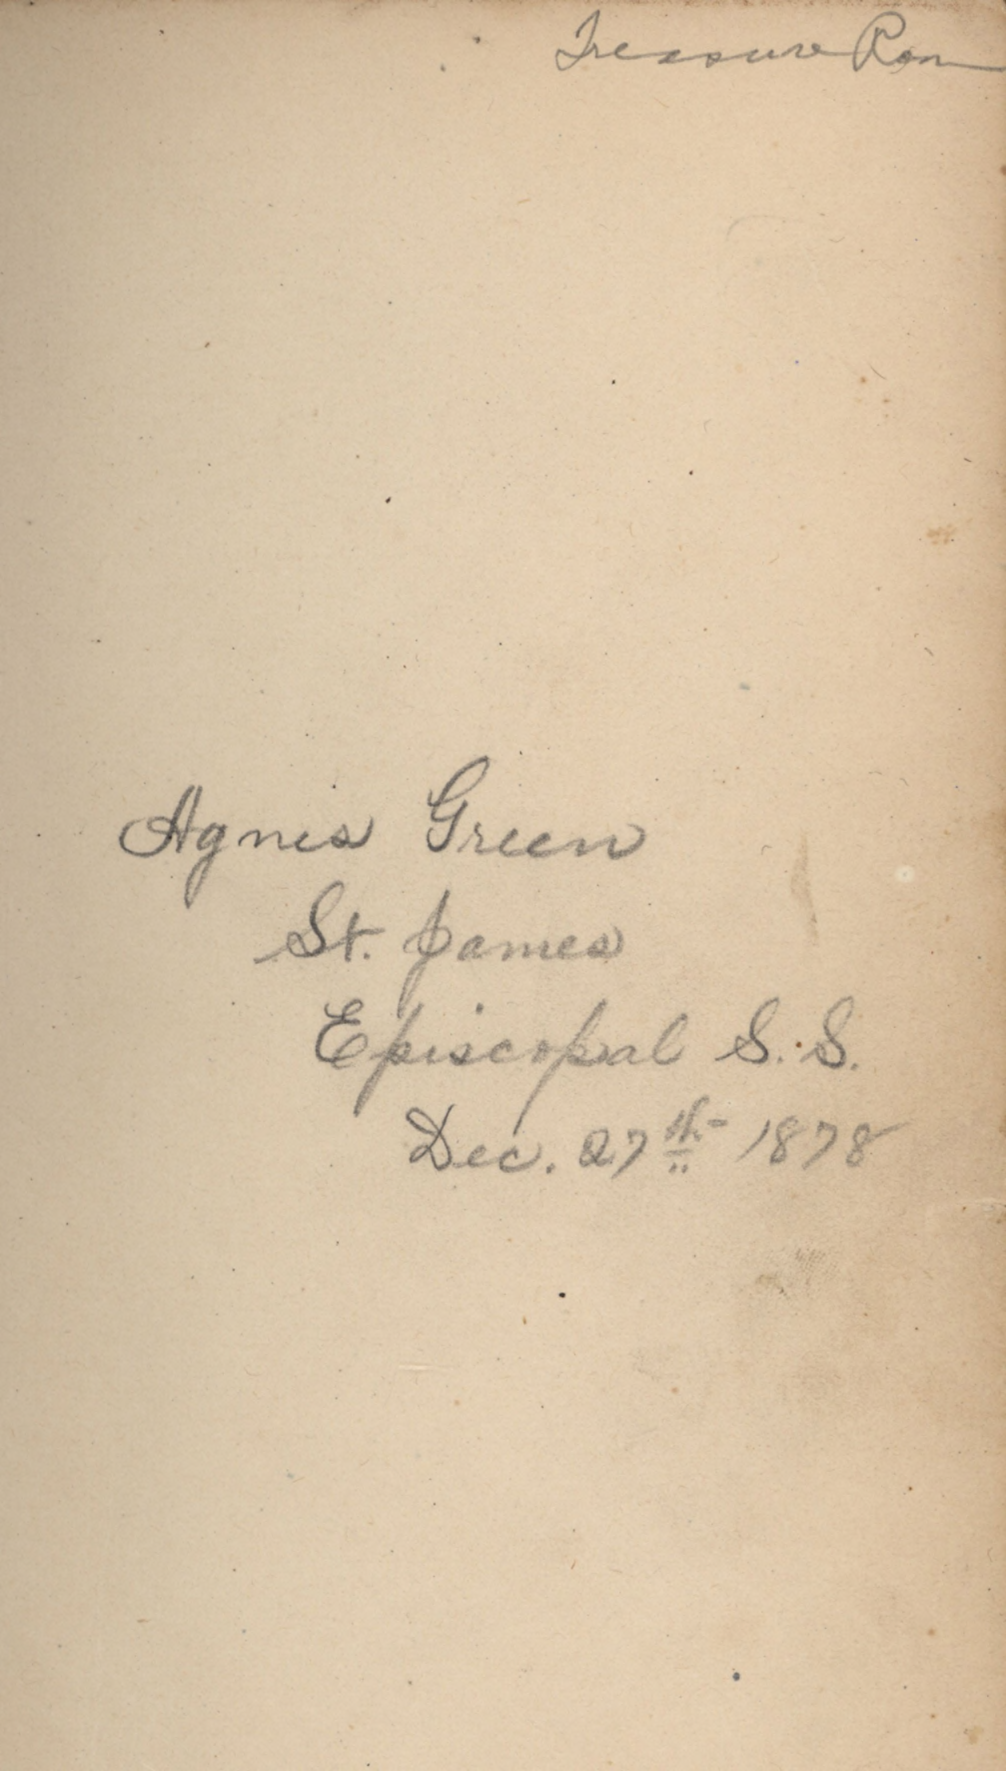 Treasure Room
Agnes Green
St. James
Episcopal S.S.
Dec. 27th 1878